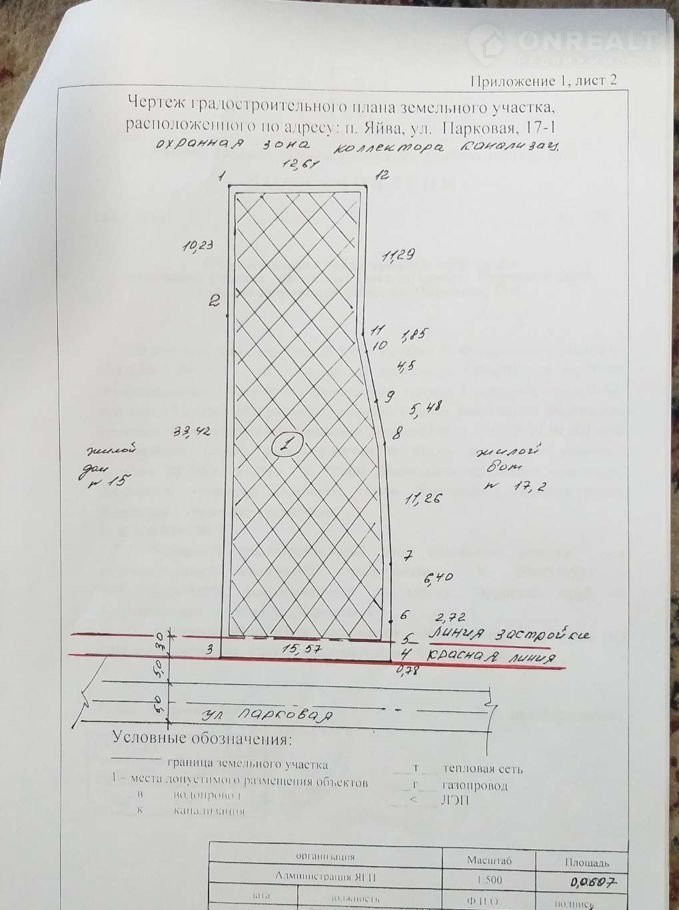 ONREALT
НЕДВИЖИМОСТЬ
Приложение 1, лист 2
Чертеж градостроительного плана земельного участка,
расположенного по адресу: п. Яйва, ул. Парковая, 17-1
охранная зона коллектора канализац.
12,61
1
12
10,23
11,29
2
11
1,85
10
4,5
9
5,48
33,42
8
1
жилой
дом
№ 15
жилой
дом
№ 17,2
11,26
7
6,40
6
2,72
5 линия застройки
3,0
3
15,57
4 красная линия
0,78
5,0
5,0
ул Парковая
Условные обозначения:
граница земельного участка
т тепловая сеть
1 – места допустимого размещения объектов
г газопровод
в водопровод
< ЛЭП
к канализация
организация
Масштаб
Площадь
Администрация ЯГП
1:500
0,0607
дата
должность
Ф.И.О.
подпись